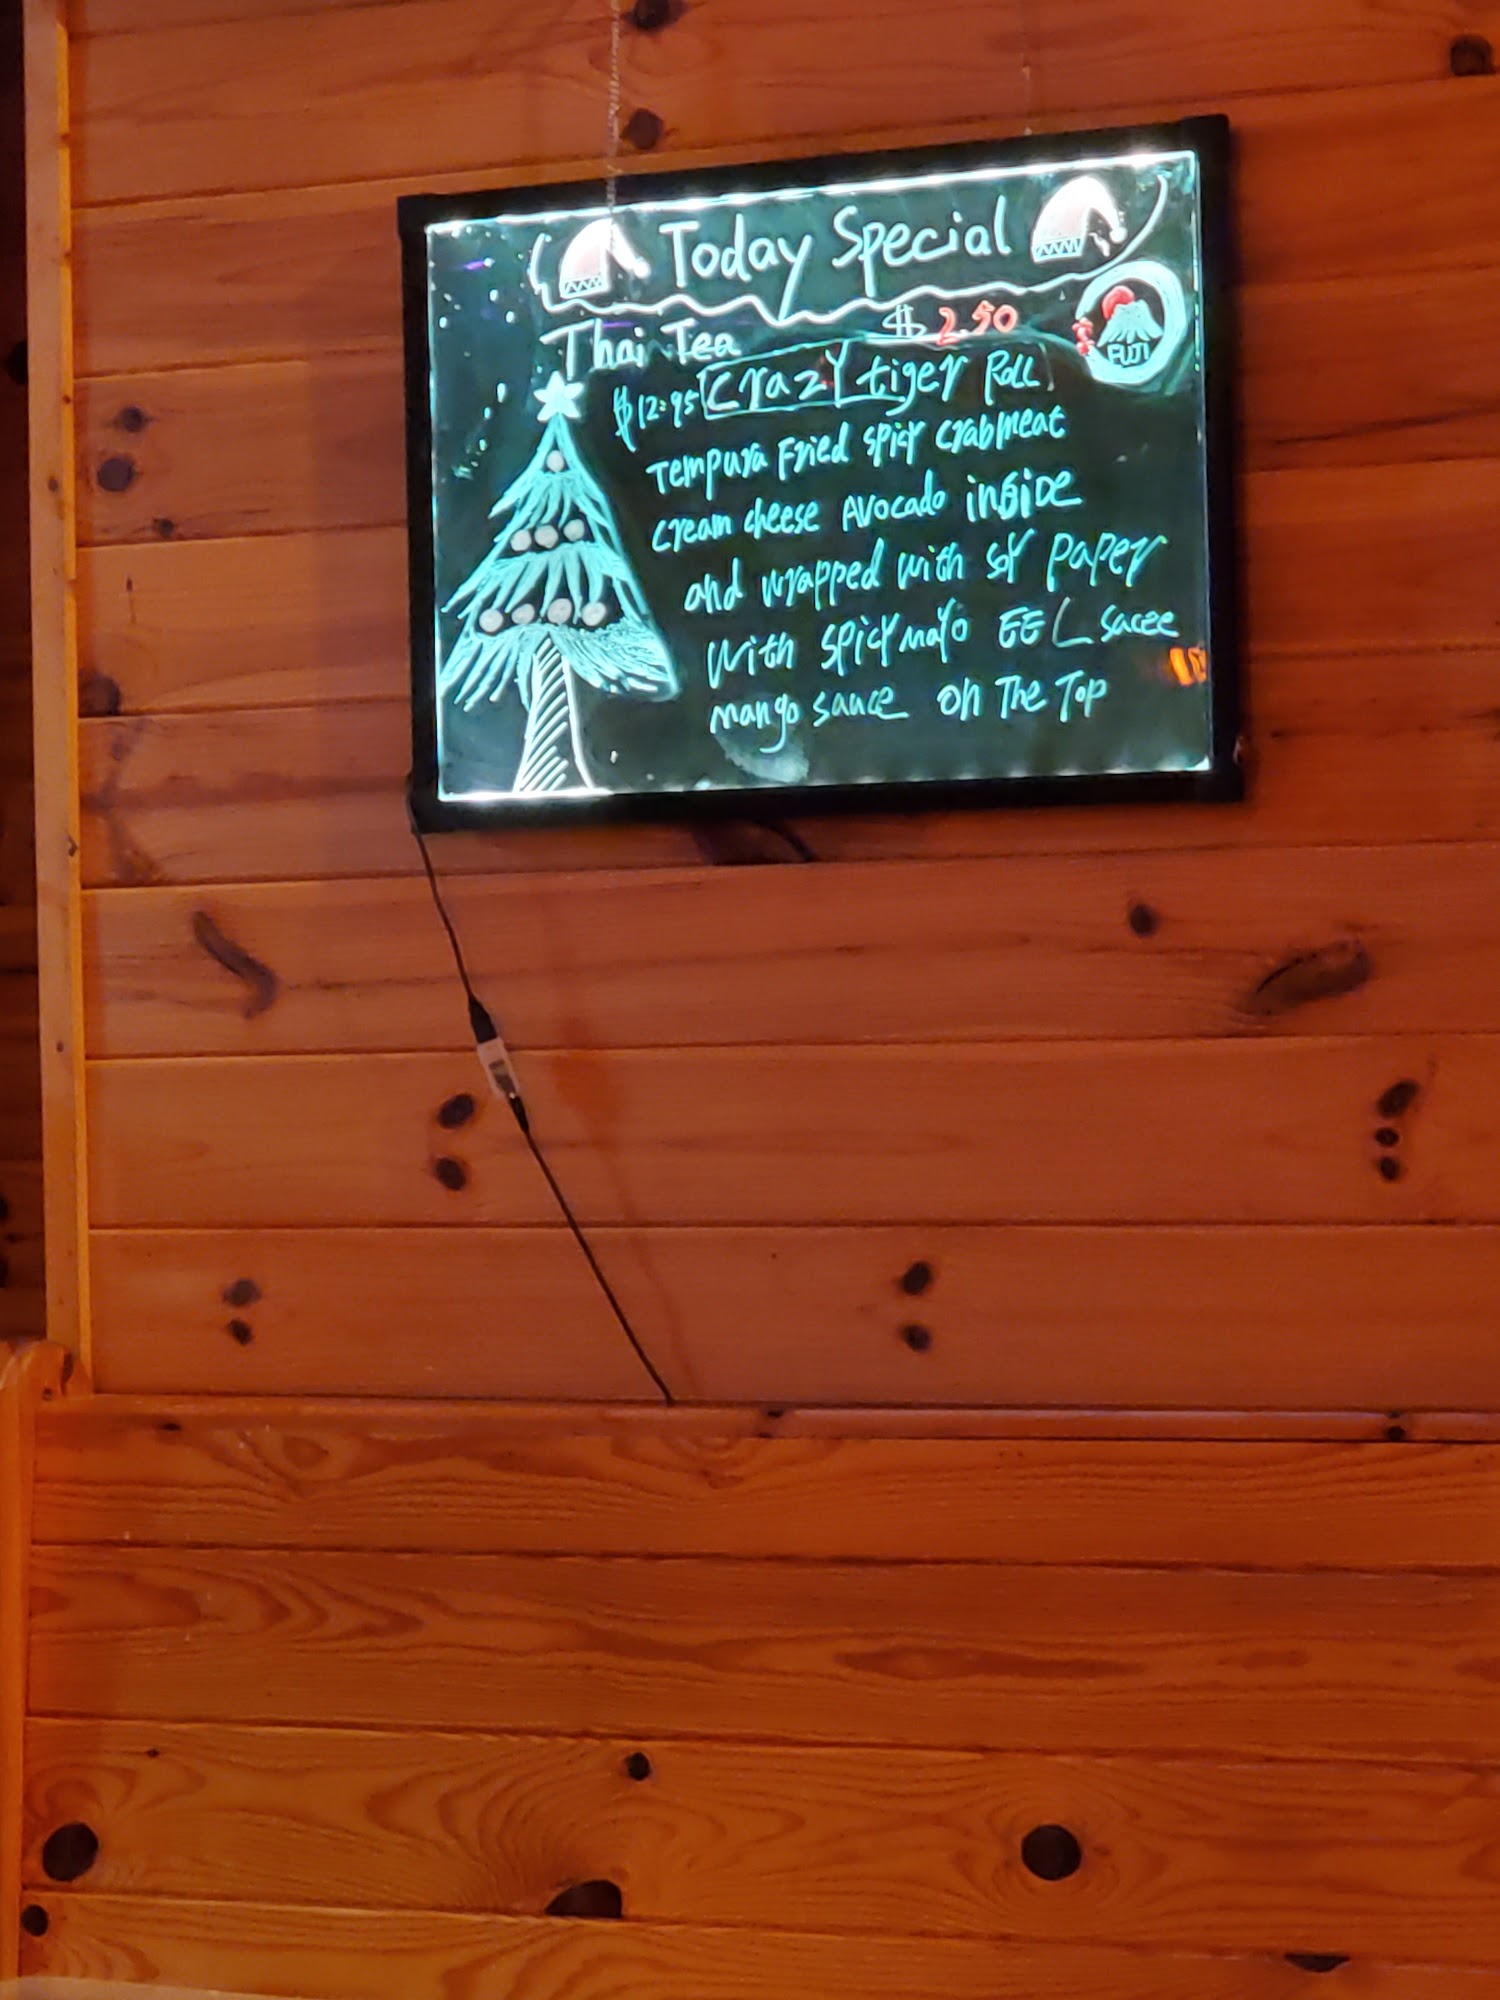 Today Special
Thai Tea $2.50
FUJI
$12.95 Crazy tiger Roll
Tempura Fried spicy crabmeat
cream cheese Avocado inside
and wrapped with soy paper
with spicy mayo EEL sacee
mango sauce on The Top